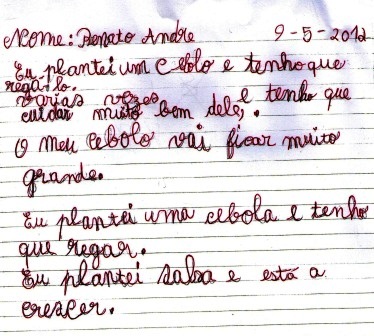 Nome: Renato Andre 9-5-2012
Eu plantei um cebolo e tenho que
regá-lo.
varias vezes e tenho que
cuidar muito bem dele,.
O meu cebolo vai ficar muito
grande.
Eu plantei uma cebola e tenho
que regar.
Eu plantei salsa e está a
crescer.